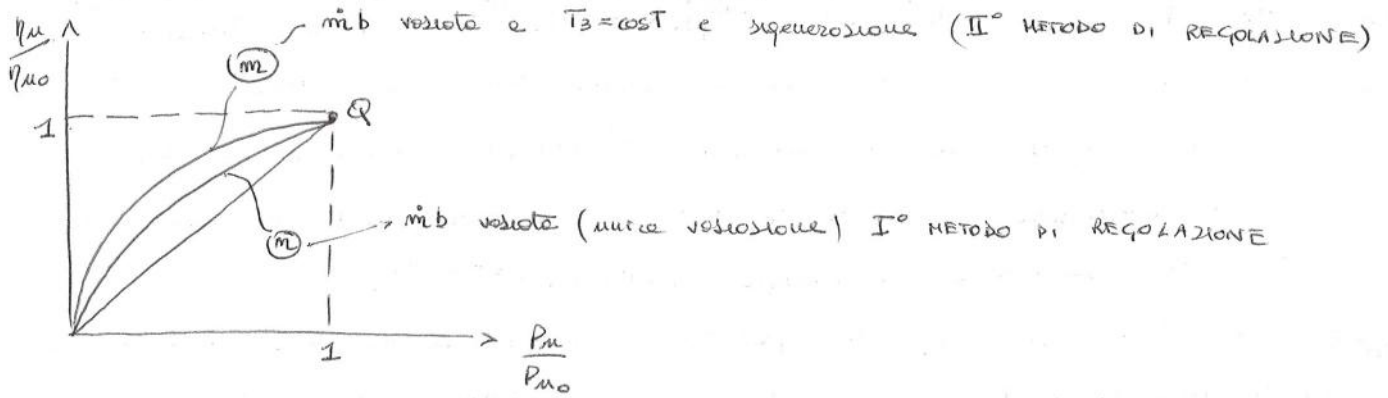 ηu/ηuo
ṁb variata e T3 = cosT e rigenerazione (II° METODO DI REGOLAZIONE)
m
1
Q
ṁb variata (unica variazione) I° METODO DI REGOLAZIONE
n
1
Pu/Puo